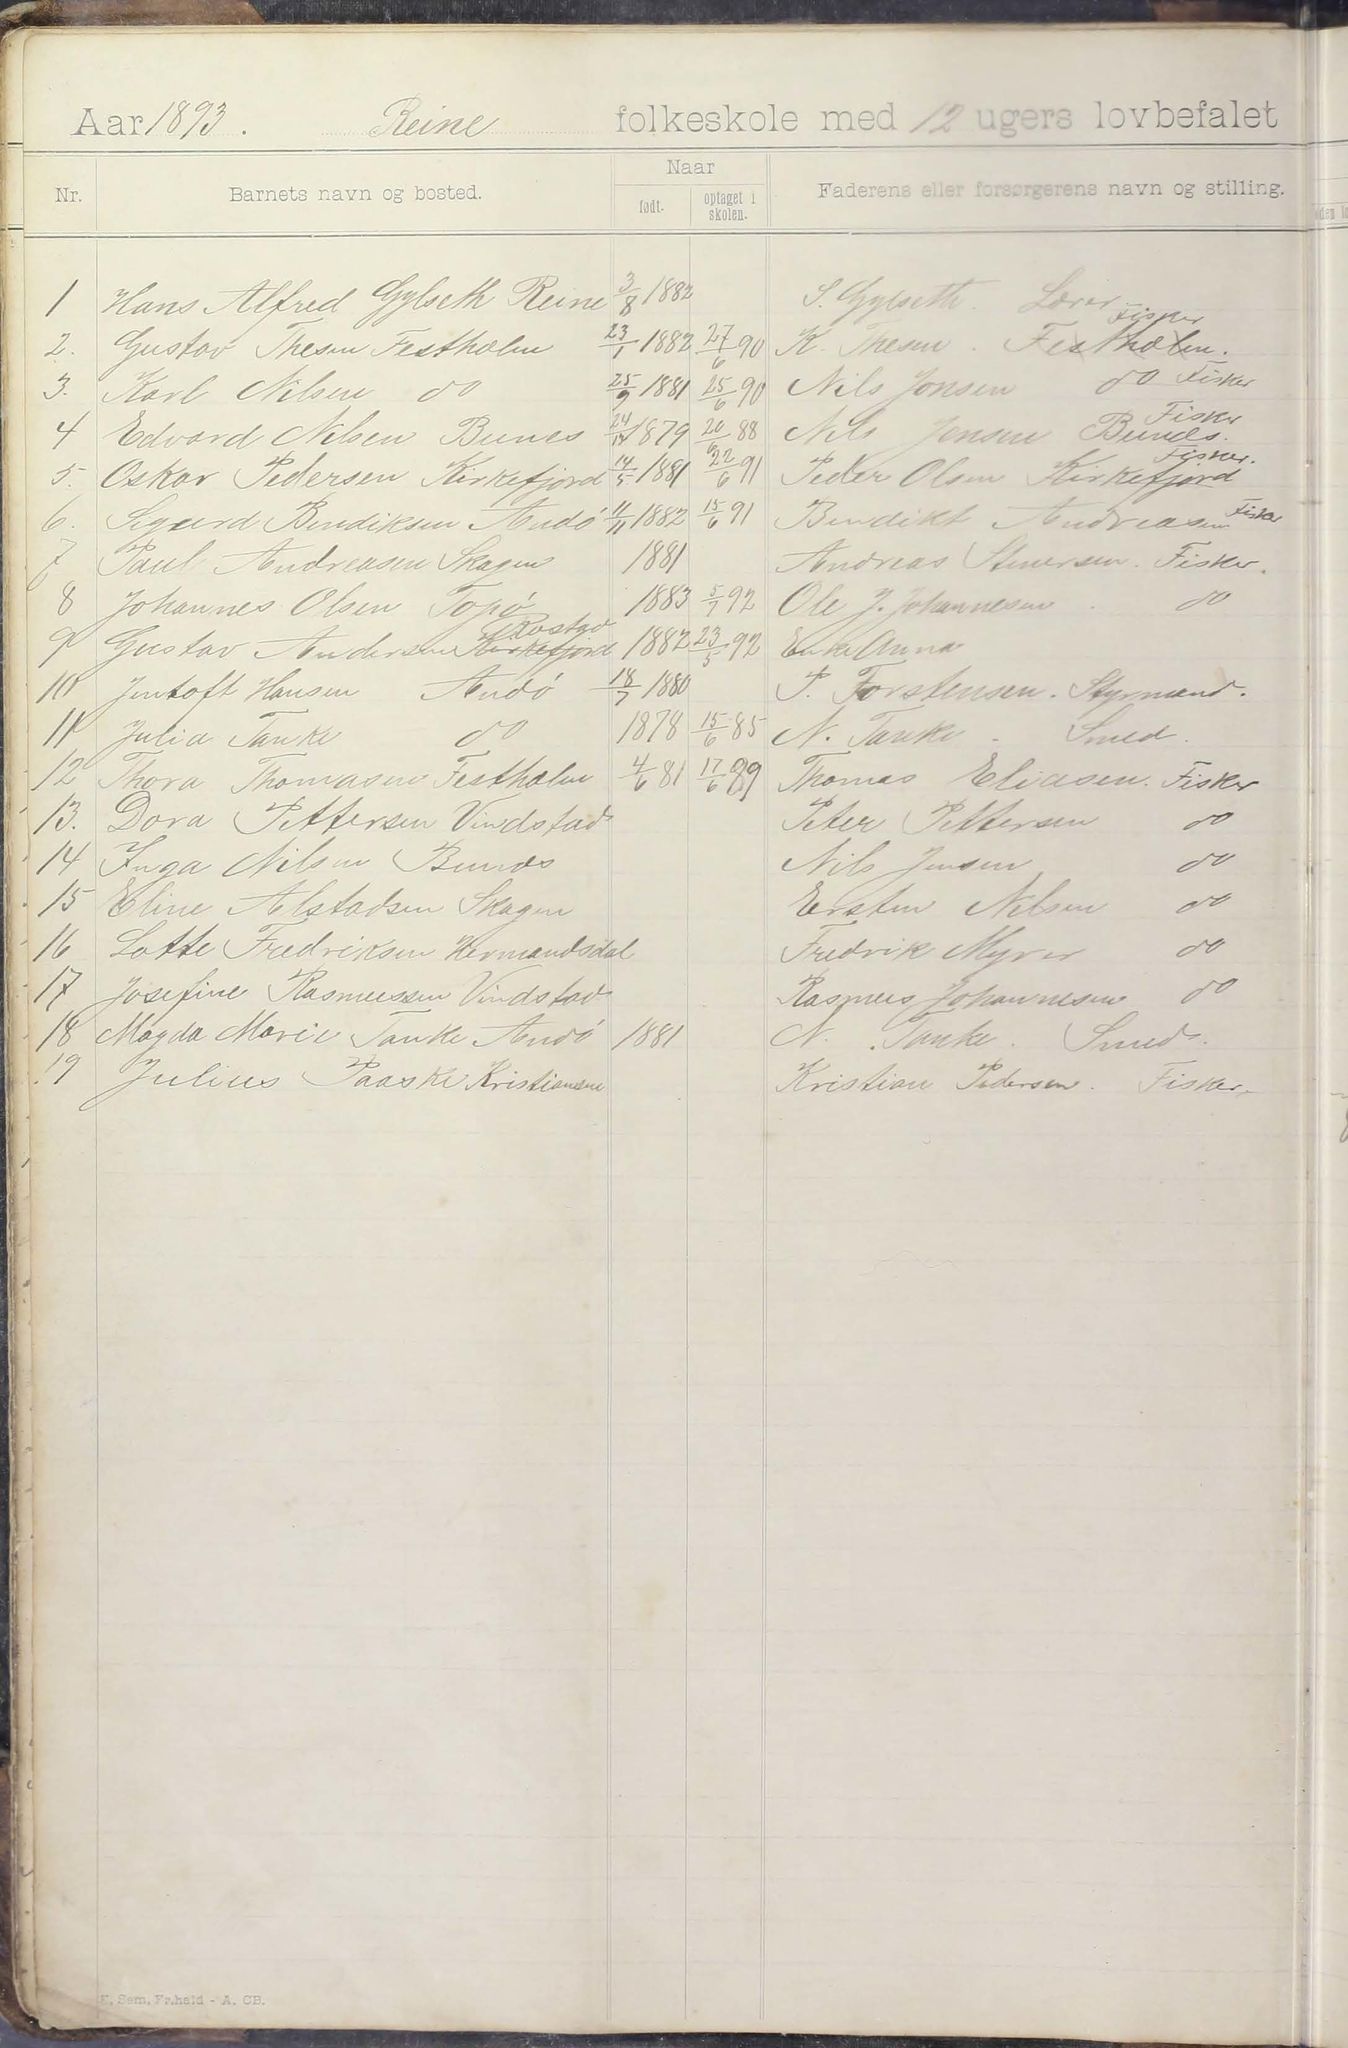 Aar 1893. Reine folkeskole med 12 ugers lovbefalet
Nr. Barnets navn og bosted. Naar født. optaget i skolen. Faderens eller forsørgerens navn og stilling.
1 Hans Alfred Gylseth Reine 3/8 1882 S. Gylseth. Lærer
2. Gustav Thesen Festhælen 23/1 1882 27/6 90 K. Thesen. Festhælen. Fisker
3. Karl Nilsen do 25/9 1881 25/6 90 Nils Jonsen do Fisker
4 Edvard Nilsen Bunes 1879 20/6 88 Nils Jensen Bunes. Fisker
5. Oskar Pedersen Kirkefjord 14/5 1881 22/6 91 Peder Olsen Kirkefjord Fisker.
6. Sigurd Bendiksen Andö 11/11 1882 15/6 91 Bendikt Andreasen Fisker
7 Paul Andreasen Skagen 1881 Andreas Stenersen. Fisker.
8 Johannes Olsen Topö 1883 5/7 92 Ole J. Johannesen. do
9 Gustav Andersen Kirkefjord Rostad 1882 23/5 92 Enke Anna
10 Jentoft Hansen Andö 18/7 1880 P. Torstensen. Styrmand.
11 Julia Tanke do 1878 15/6 85 N. Tanke - Smed.
12 Thora Thomasen Festhælen 4/6 81 17/6 89 Thomas Eliasen. Fisker
13. Dora Pettersen Vindstad Peter Pettersen do
14 Inga Nilsen Bunes Nils Jensen do
15 Eline Alstadsen Skagen Ersten Nilsen do
16 Lotte Fredriksen Hermandsdal Fredrik Myrer do
17 Josefine Rasmussen Vindstad Rasmus Johannesen do
18 Magda Marie Tanke Andö 1881 N. Tanke. Smed.
19 Julius Paaske Kristiansen Kristian Pedersen. Fisker.